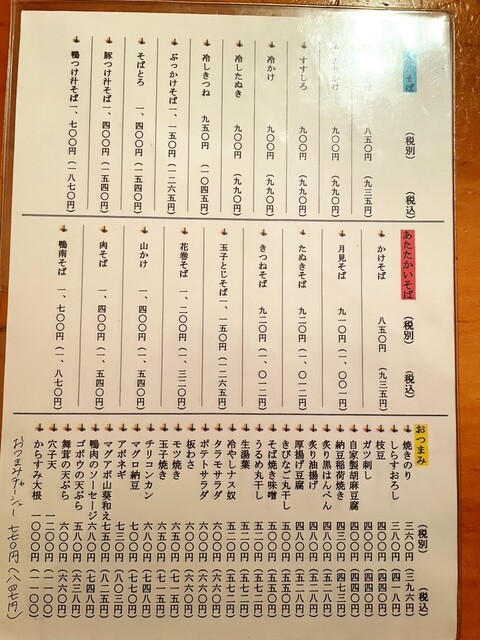 そば (税別) (税込)
八五〇円 (九三五円)
九〇〇円 (九九〇円)
すずしろ 九〇〇円 (九九〇円)
冷かけ 九〇〇円 (九九〇円)
冷したぬき 九〇〇円 (九九〇円)
冷しきつね 九五〇円 (一〇四五円)
ぶっかけそば一、一五〇円 (一二六五円)
そばとろ 一、四〇〇円 (一五四〇円)
豚つけ汁そば一、四〇〇円 (一五四〇円)
鴨つけ汁そば一、七〇〇円 (一八七〇円)
あたたかいそば (税別) (税込)
かけそば 八五〇円 (九三五円)
月見そば 九一〇円 (一、〇〇一円)
たぬきそば 九二〇円 (一、〇一二円)
きつねそば 九二〇円 (一、〇一二円)
玉子とじそば一、一五〇円 (一二六五円)
花巻そば 一、二〇〇円 (一、三二〇円)
山かけ 一、四〇〇円 (一、五四〇円)
肉そば 一、四〇〇円 (一、五四〇円)
鴨南そば 一、七〇〇円 (一、八七〇円)
おつまみ (税別) (税込)
焼きのり 三六〇円 (三九六円)
しらすおろし 三八〇円 (四一八円)
枝豆 四〇〇円 (四四〇円)
ガツ刺し 四〇〇円 (四四〇円)
自家製胡麻豆腐 四〇〇円 (四四〇円)
納豆稲荷焼き 四三〇円 (四七三円)
炙り黒はんぺん 四八〇円 (五二八円)
炙り油揚げ 四八〇円 (五二八円)
厚揚げ豆腐 四八〇円 (五二八円)
きびなご丸干し 五〇〇円 (五五〇円)
そば焼き味噌 五〇〇円 (五五〇円)
うるめ丸干し 五二〇円 (五七二円)
生湯葉 五二〇円 (五七二円)
冷やしナス奴 五二〇円 (五七二円)
タラモサラダ 六〇〇円 (六六〇円)
ポテトサラダ 六〇〇円 (六六〇円)
板わさ 六〇〇円 (六六〇円)
モツ焼き 六五〇円 (七一五円)
玉子焼き 六五〇円 (七一五円)
チリコンカン 六八〇円 (七四八円)
マグロ納豆 七〇〇円 (七七〇円)
アボネギ 七三〇円 (八〇三円)
マグアボ山葵和え 七五〇円 (八二五円)
鴨肉のソーセージ 六八〇円 (七四八円)
ゴボウの天ぷら 五八〇円 (六三八円)
舞茸の天ぷら 六〇〇円 (六六〇円)
穴子天
からすみ大根 一〇〇〇円 (一一〇〇
おつまみチャーシュー 七七〇円 (八四七円)